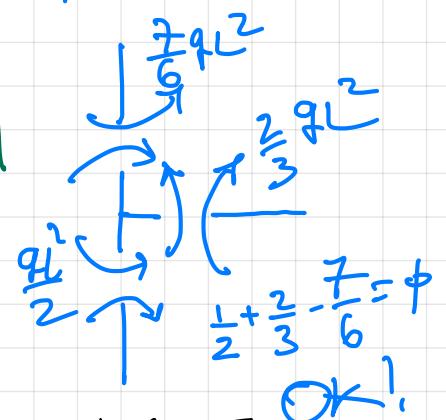 7/6 qL²
2/3 qL²
qL²/2
1/2 + 2/3 - 7/6 = φ
OK!